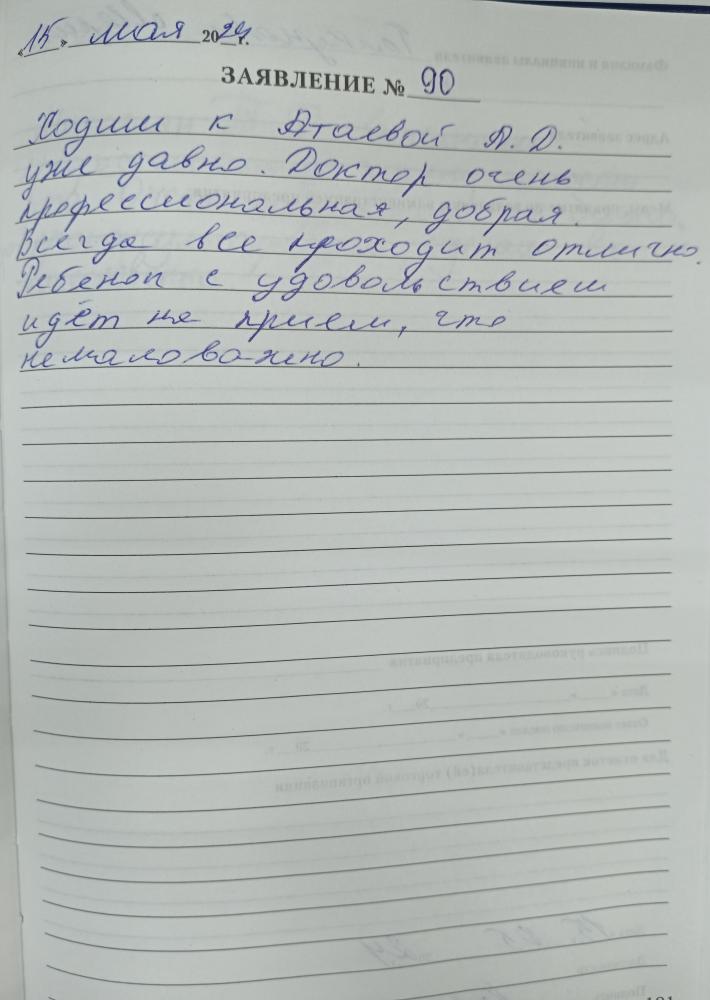 «15» мая 2024 г.
ЗАЯВЛЕНИЕ № 90
Ходим к Атаевой А. Д.
уже давно. Доктор очень
профессиональная, добрая.
Всегда все проходит отлично.
Ребенок с удовольствием
идёт на прием, что
немаловажно.